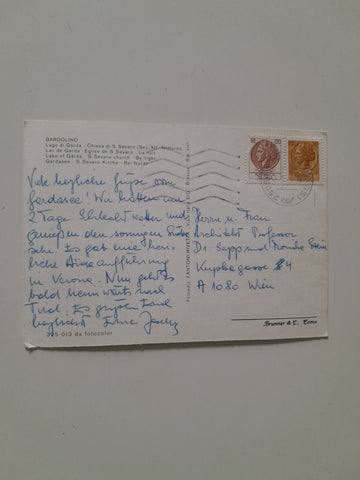 BARDOLINO
Lago di Garda - Chiesa di S. Severo (Sec. XI) - Notturno
Lac de Garda - Eglise de S. Severo - La nuit
Lake of Garda - S. Severo church - By night
Gardasee - S. Severo Kirche - Bei Nacht
Viele herzliche Grüße vom
Gardasee! Wir hatten nur
2 Tage Schlechtwetter und
genießen den sonnigen
sehr! Es gab eine herr-
liche Aida aufführung
in Verona. Nun geht's
bald heimwärts nach
Tirol. Es grüßen Euch
herzlichst
Herrn u. Frau
Architekt Professor
Dr. Sepp und Stein
gasse 4
A 1080 Wien
325-013 da fotocolor
Brunner & C., Como